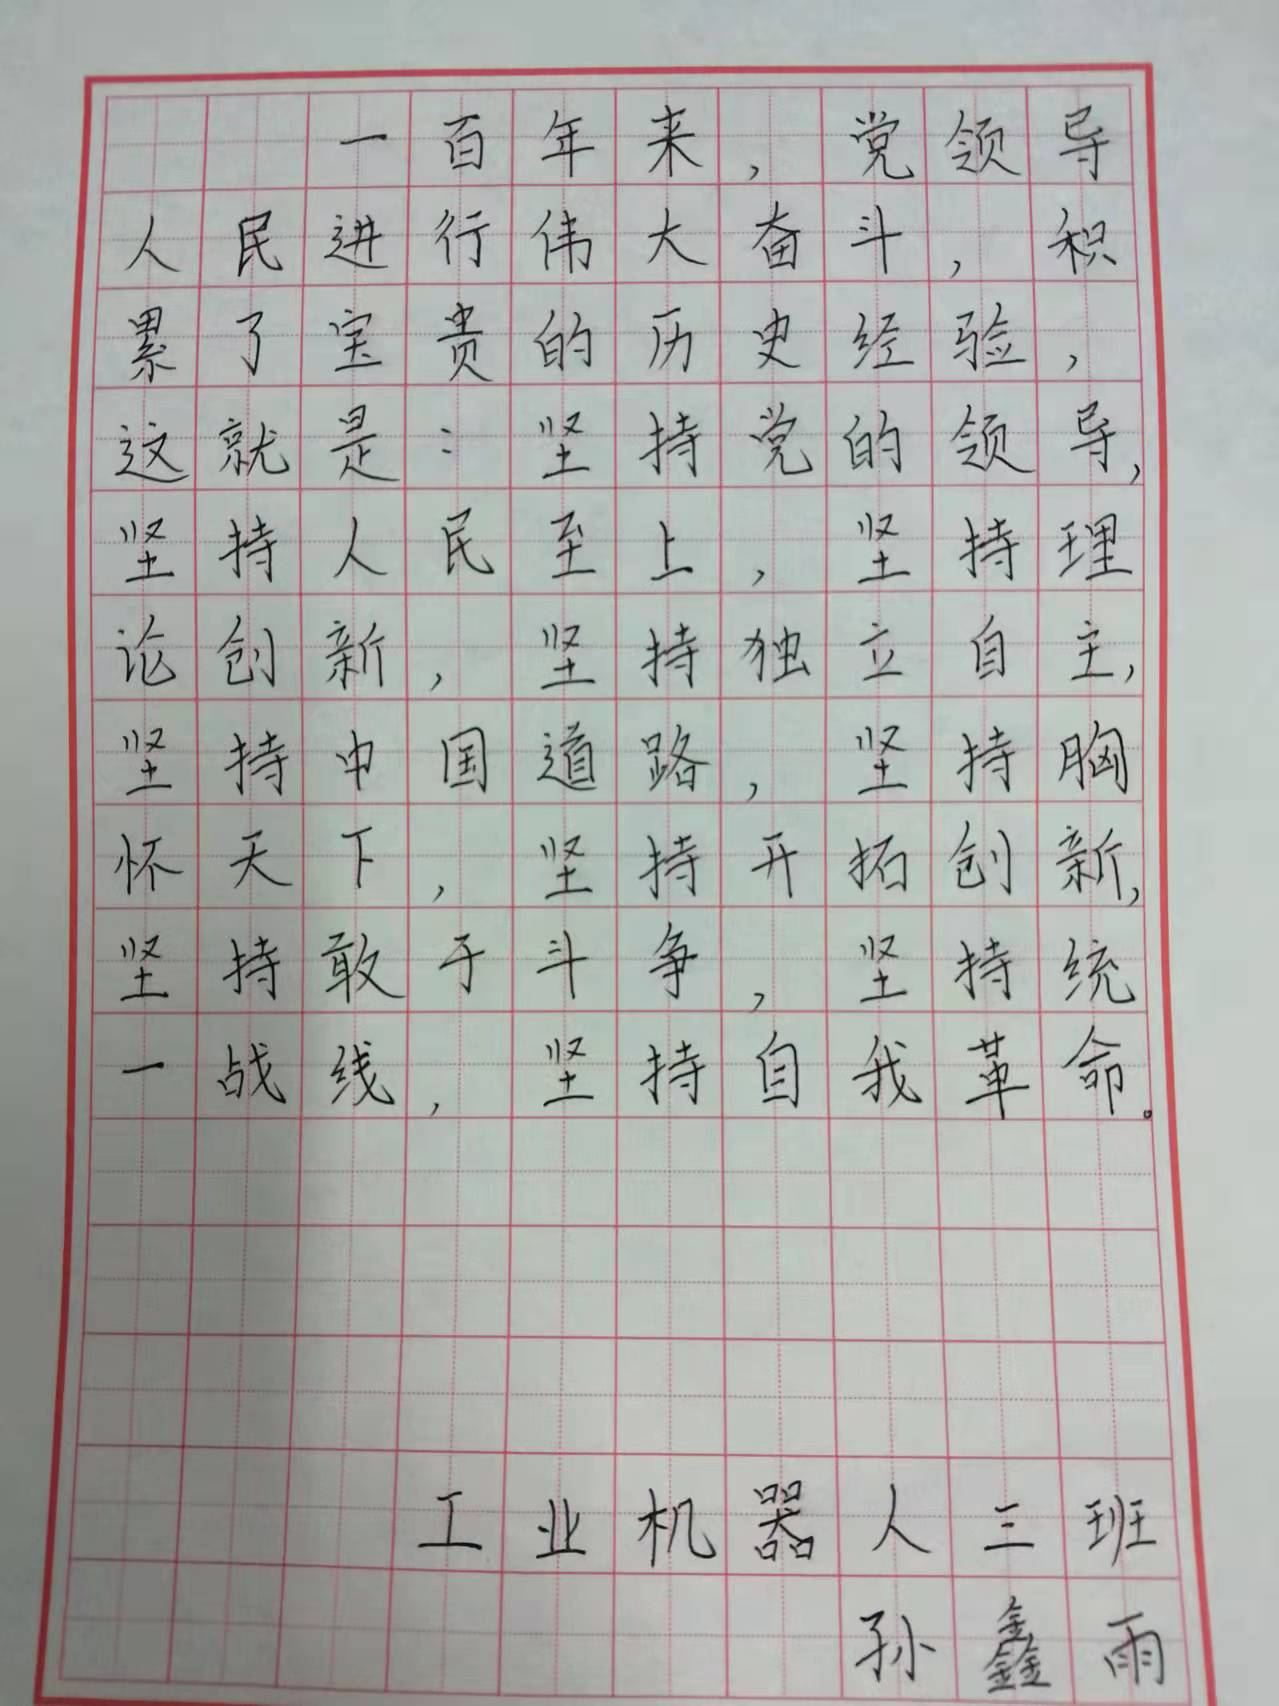 一百年来，党领导
人民进行伟大奋斗，积
累了宝贵的历史经验，
这就是：坚持党的领导，
坚持人民至上，坚持理
论创新，坚持独立自主，
坚持中国道路，坚持胸
怀天下，坚持开拓创新，
坚持敢于斗争，坚持统
一战线，坚持自我革命。
工业机器人三班
孙鑫雨